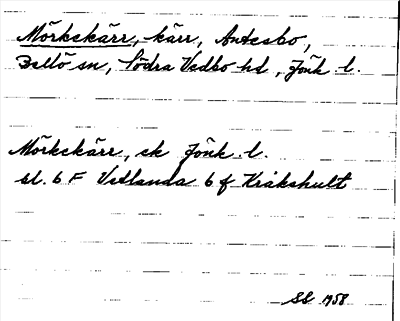 Mörkekärr, kärr, Antesbo,
Bellö sn, Södra Vedbo hd, Jönk. l.
Mörkekärr, ek Jönk. l.
bl. 6 F Vetlanda 6 f Kråkshult
SL 1958